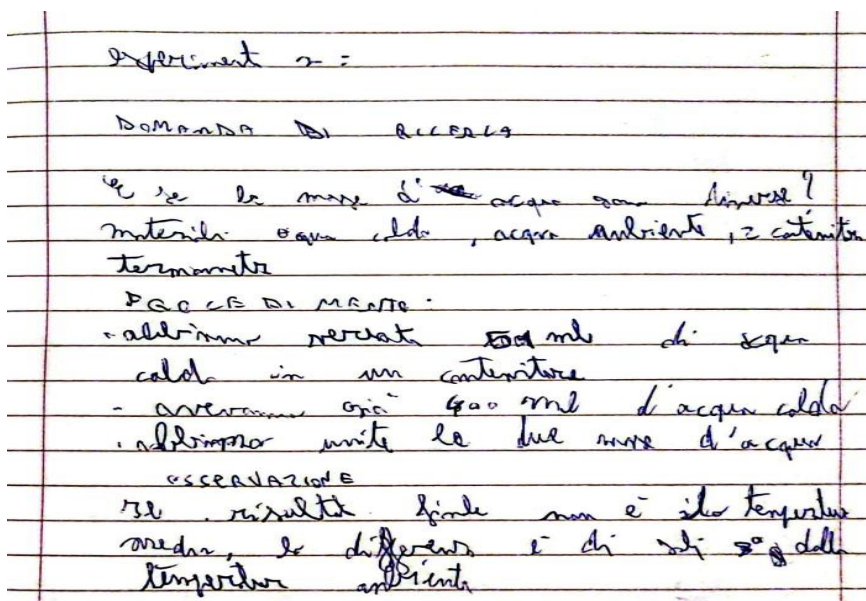 esperimento 2 =
DOMANDA DI RICERCA
E se le masse d' acqua sono diverse?
materiali acqua calda, acqua ambiente, 2 contenitori
termometro
PROCEDIMENTO.
- abbiamo versato ml di acqua
calda in un contenitore
- avevamo già 400 ml d'acqua calda
- abbiamo unito le due masse d'acqua
OSSERVAZIONE
Il risultato finale non è stato temperatura
media, la differenza è di soli dalla
temperatura ambiente